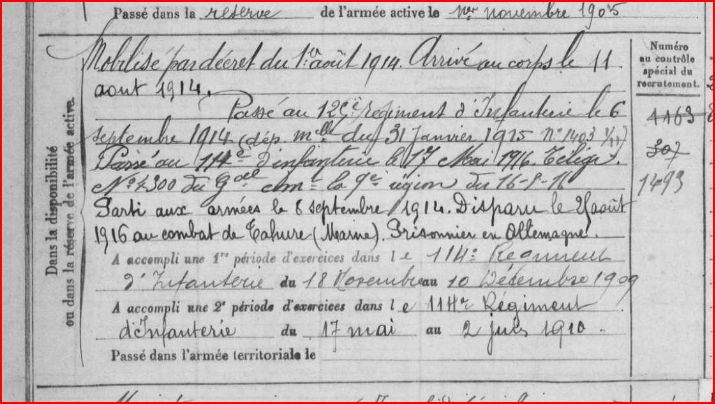 Passé dans la réserve de l'armée active le 1er novembre 1905
Mobilisé par décret du 1er août 1914. Arrivé au corps le 11
août 1914.
Passé au 129e régiment d'Infanterie le 6
septembre 1914 (dép. mlle du 31 Janvier 1915 N° 1403 1/11)
Passé au 114e d'infanterie le 1er Mai 1916. Télégr.
N° 2300 du Gal Comt la 9e région du 16-5-16
Parti aux armées le 6 septembre 1914. Disparu le 25 août
1916 au combat de Tahure (Marne). Prisonnier en Allemagne.
A accompli une 1re période d'exercices dans le 114e Régiment
d'Infanterie du 18 Novembre au 10 Décembre 1909
A accompli une 2e période d'exercices dans le 114e Régiment
d'Infanterie du 17 mai au 2 juin 1910.
Passé dans l'armée territoriale le
Dans la disponibilité
ou dans la réserve de l'armée active.
Numéro
au contrôle
spécial du
recrutement.
1163
307
1493